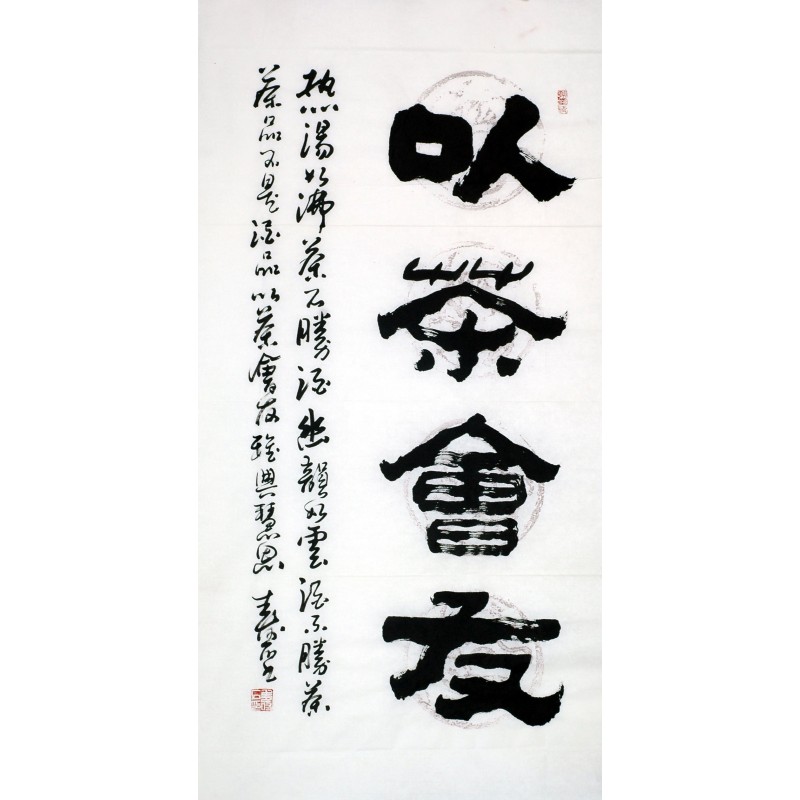 以茶會友
热湯如沸茶不勝酒幽韻如雲酒不勝茶
茶品不是酒品以茶會友雅興慧思